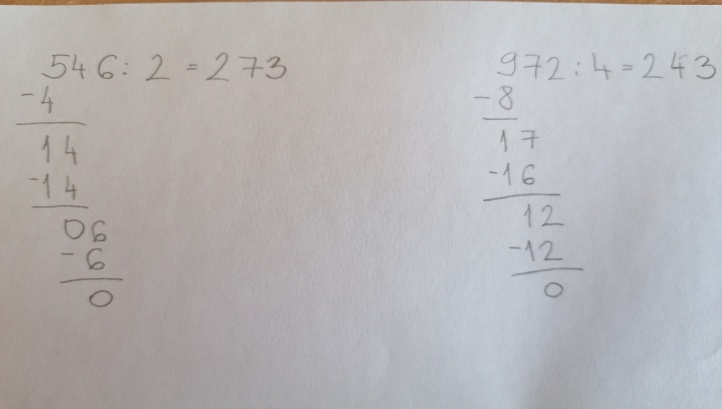 546 : 2 = 273
-4
14
-14
06
-6
0
972 : 4 = 243
-8
17
-16
12
-12
0